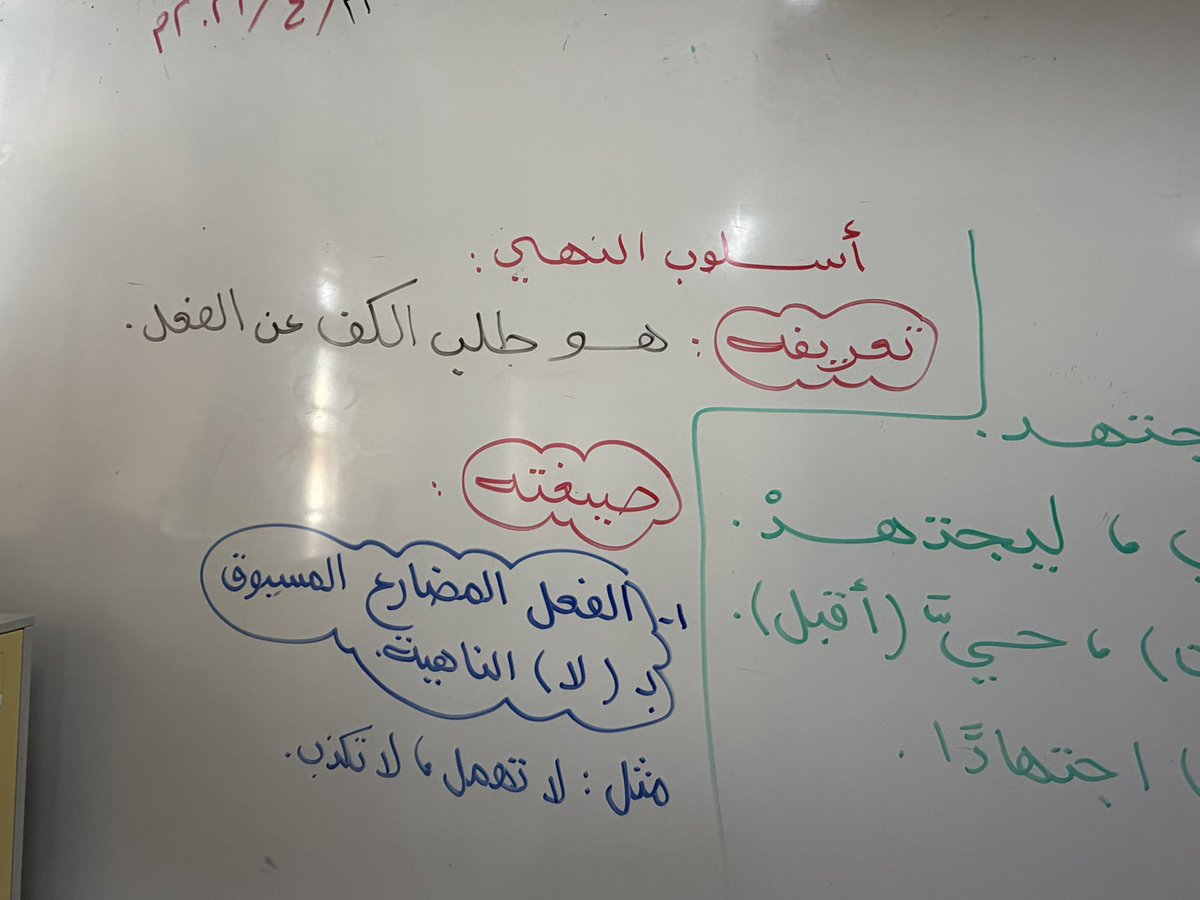 ٢٠٢١/٤/٢١م
أسلوب النهي:
تعريفه : هو طلب الكف عن الفعل.
صيغته :
١- الفعل المضارع المسبوق
بـ (لا) الناهية.
مثل : لا تهمل، لا تكذب.
جتهد.
، ليجتهدْ.
، حيَّ (أقبل).
اجتهادًا.